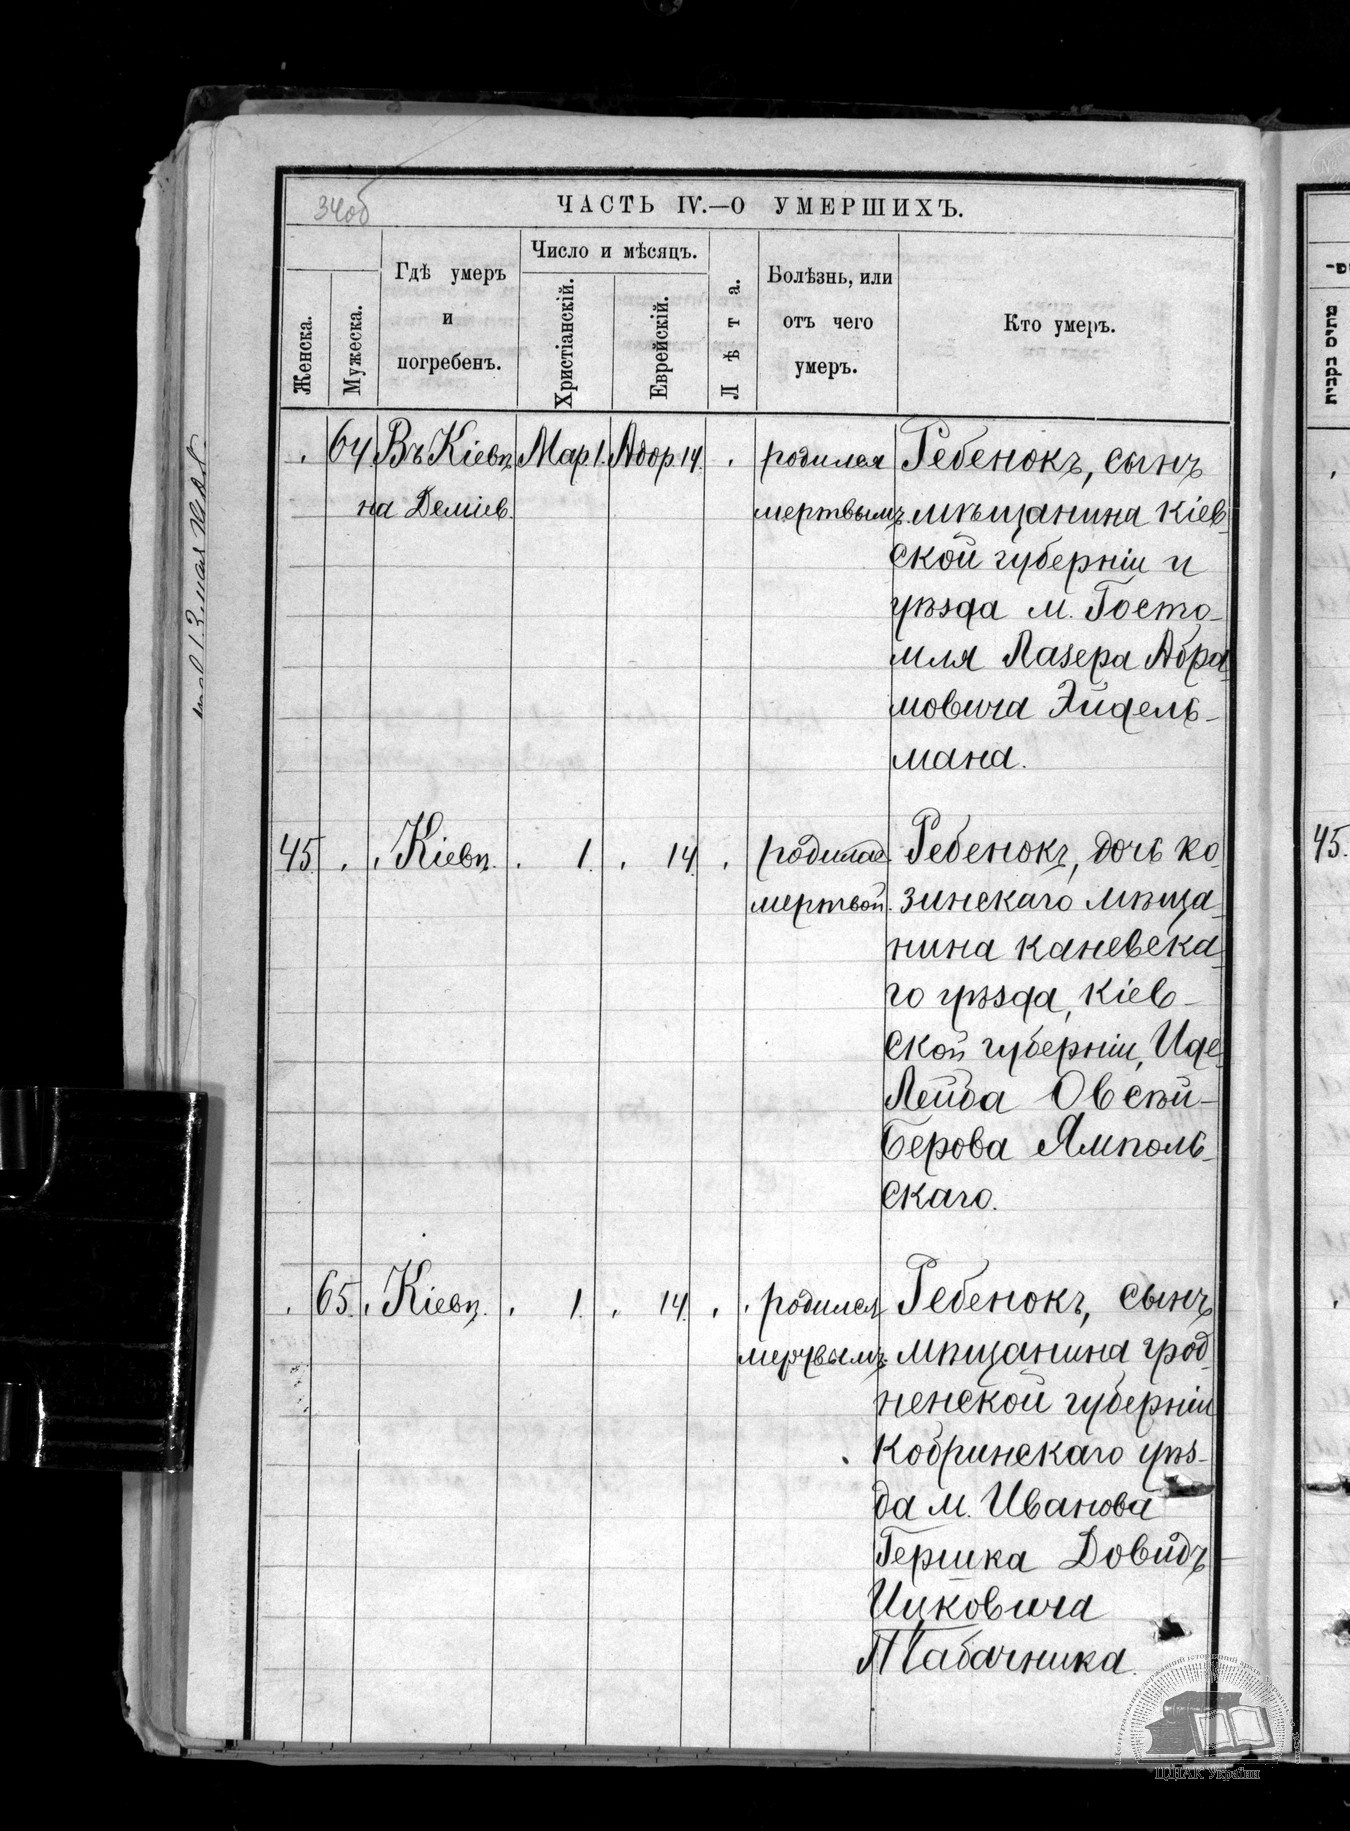 34об
ЧАСТЬ IV.—О УМЕРШИХЪ.
Женска.
Мужеска.
Гдѣ умеръ
и
погребенъ.
Число и мѣсяцъ.
Христіанскій.
Еврейскій.
Лѣта.
Болѣзнь, или
отъ чего
умеръ.
Кто умеръ.
64. Въ Кіевѣ Мар. 1. Адор 14. родился Ребенокъ, сынъ
на Деміев. мертвымъ. мѣщанина Кіев-
ской губерніи и
уѣзда м. Госто-
мля Лазера Абра-
мовича Эйдель-
мана.
45. Кіевѣ. 1. 14. родилась Ребенокъ, дочь ко-
мертвой. зинскаго мѣща-
нина каневска-
го уѣзда, Кіев-
ской губерніи, Иде
Лейба Овсѣй-
Берова Ямполь-
скаго.
65. Кіевѣ. 1. 14. родился Ребенокъ, сынъ
мертвымъ. мѣщанина грод-
ненской губерніи
Кобринскаго уѣз-
да м. Иванова
Гершка Довидъ
Ицковича
Табачника.
45.
ЦДІАК України